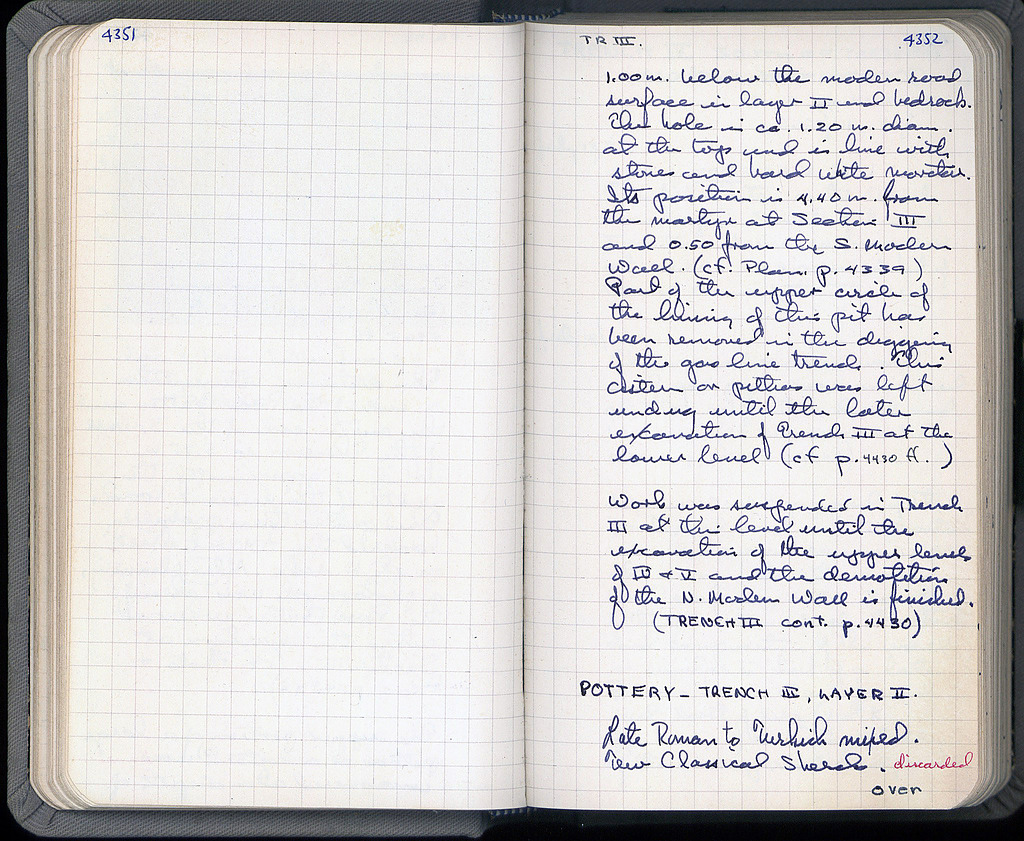 4351
TR III.
4352
1.00 m. below the modern road
surface in layer II and bedrock.
The hole is ca. 1.20 m. diam.
at the top and is line with
stones and hard white mortar.
Its position is 4.40 m. from
the martyr at Section III
and 0.50 from the S. Modern
Wall. (cf. Plan. p. 4339)
Part of the upper circle of
the lining of this pit has
been removed in the digging
of the gas line trench. This
cistern or pithos was left
undug until the later
excavation of Trench III at the
lower level (cf p. 4430 ff.)
Work was suspended in Trench
III at this level until the
excavation of the upper levels
of IV & V and the demolition
of the N. Modern Wall is finished.
(TRENCH III cont. p. 4430)
POTTERY - TRENCH III, LAYER II.
Late Roman to Turkish mixed.
Few Classical Sherds. discarded
over